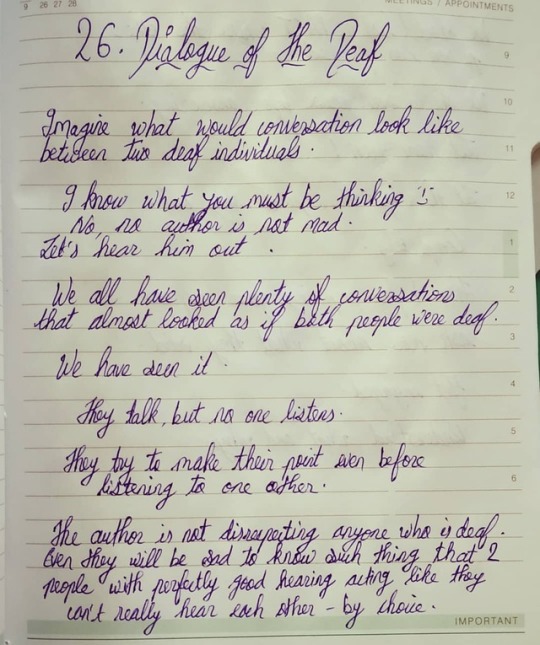 9 26 27 28
MEETINGS / APPOINTMENTS
26. Dialogue of the Deaf
9
10
Imagine what would conversation look like
between two deaf individuals.
11
I know what you must be thinking
12
No, no author is not mad.
Let's hear him out.
1
We all have seen plenty of conversations
2
that almost looked as if both people were deaf.
3
We have seen it.
4
They talk, but no one listens.
5
They try to make their point even before
6
listening to one other.
The author is not disrespecting anyone who is deaf.
Even they will be sad to know such thing that 2
people with perfectly good hearing acting like they
can't really hear each other - by choice.
IMPORTANT